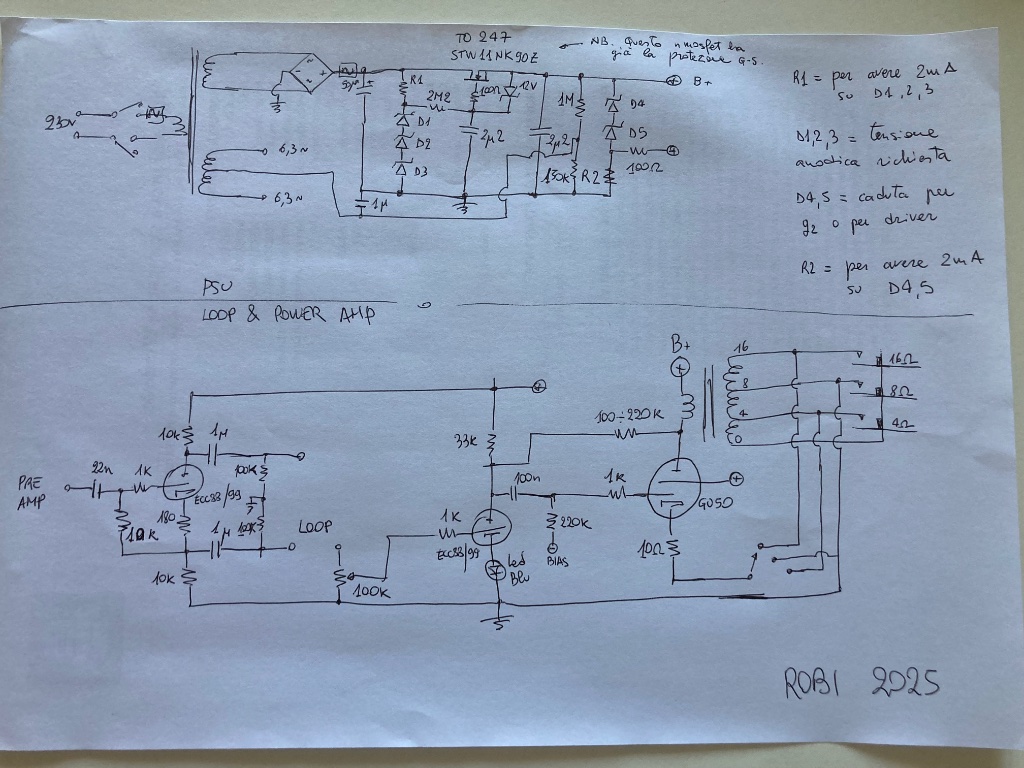 TO 247
STW11NK90Z
NB. Questo nmosfet ha
già la protezione G-S.
R1 = per avere 2mA
su D1,2,3
D1,2,3 = tensione
anodica richiesta
D4,5 = caduta per
g2 o per driver
R2 = per avere 2mA
su D4,5
230V
6,3 ~
6,3 ~
R1
2M2
100Ω
12V
D1
D2
D3
2µ2
2µ2
1M
D4
D5
100Ω
130K
R2
1µ
B+
PSU
LOOP & POWER AMP
PRE
AMP
22n
1K
10k
1µ
100K
ECC88/99
180
1µ
100K
10k
LOOP
100K
33K
1K
ECC88/99
Led
Blu
100n
220K
BIAS
100÷220K
1K
B+
GU50
10Ω
16
8
4
0
16Ω
8Ω
4Ω
ROBI 2025